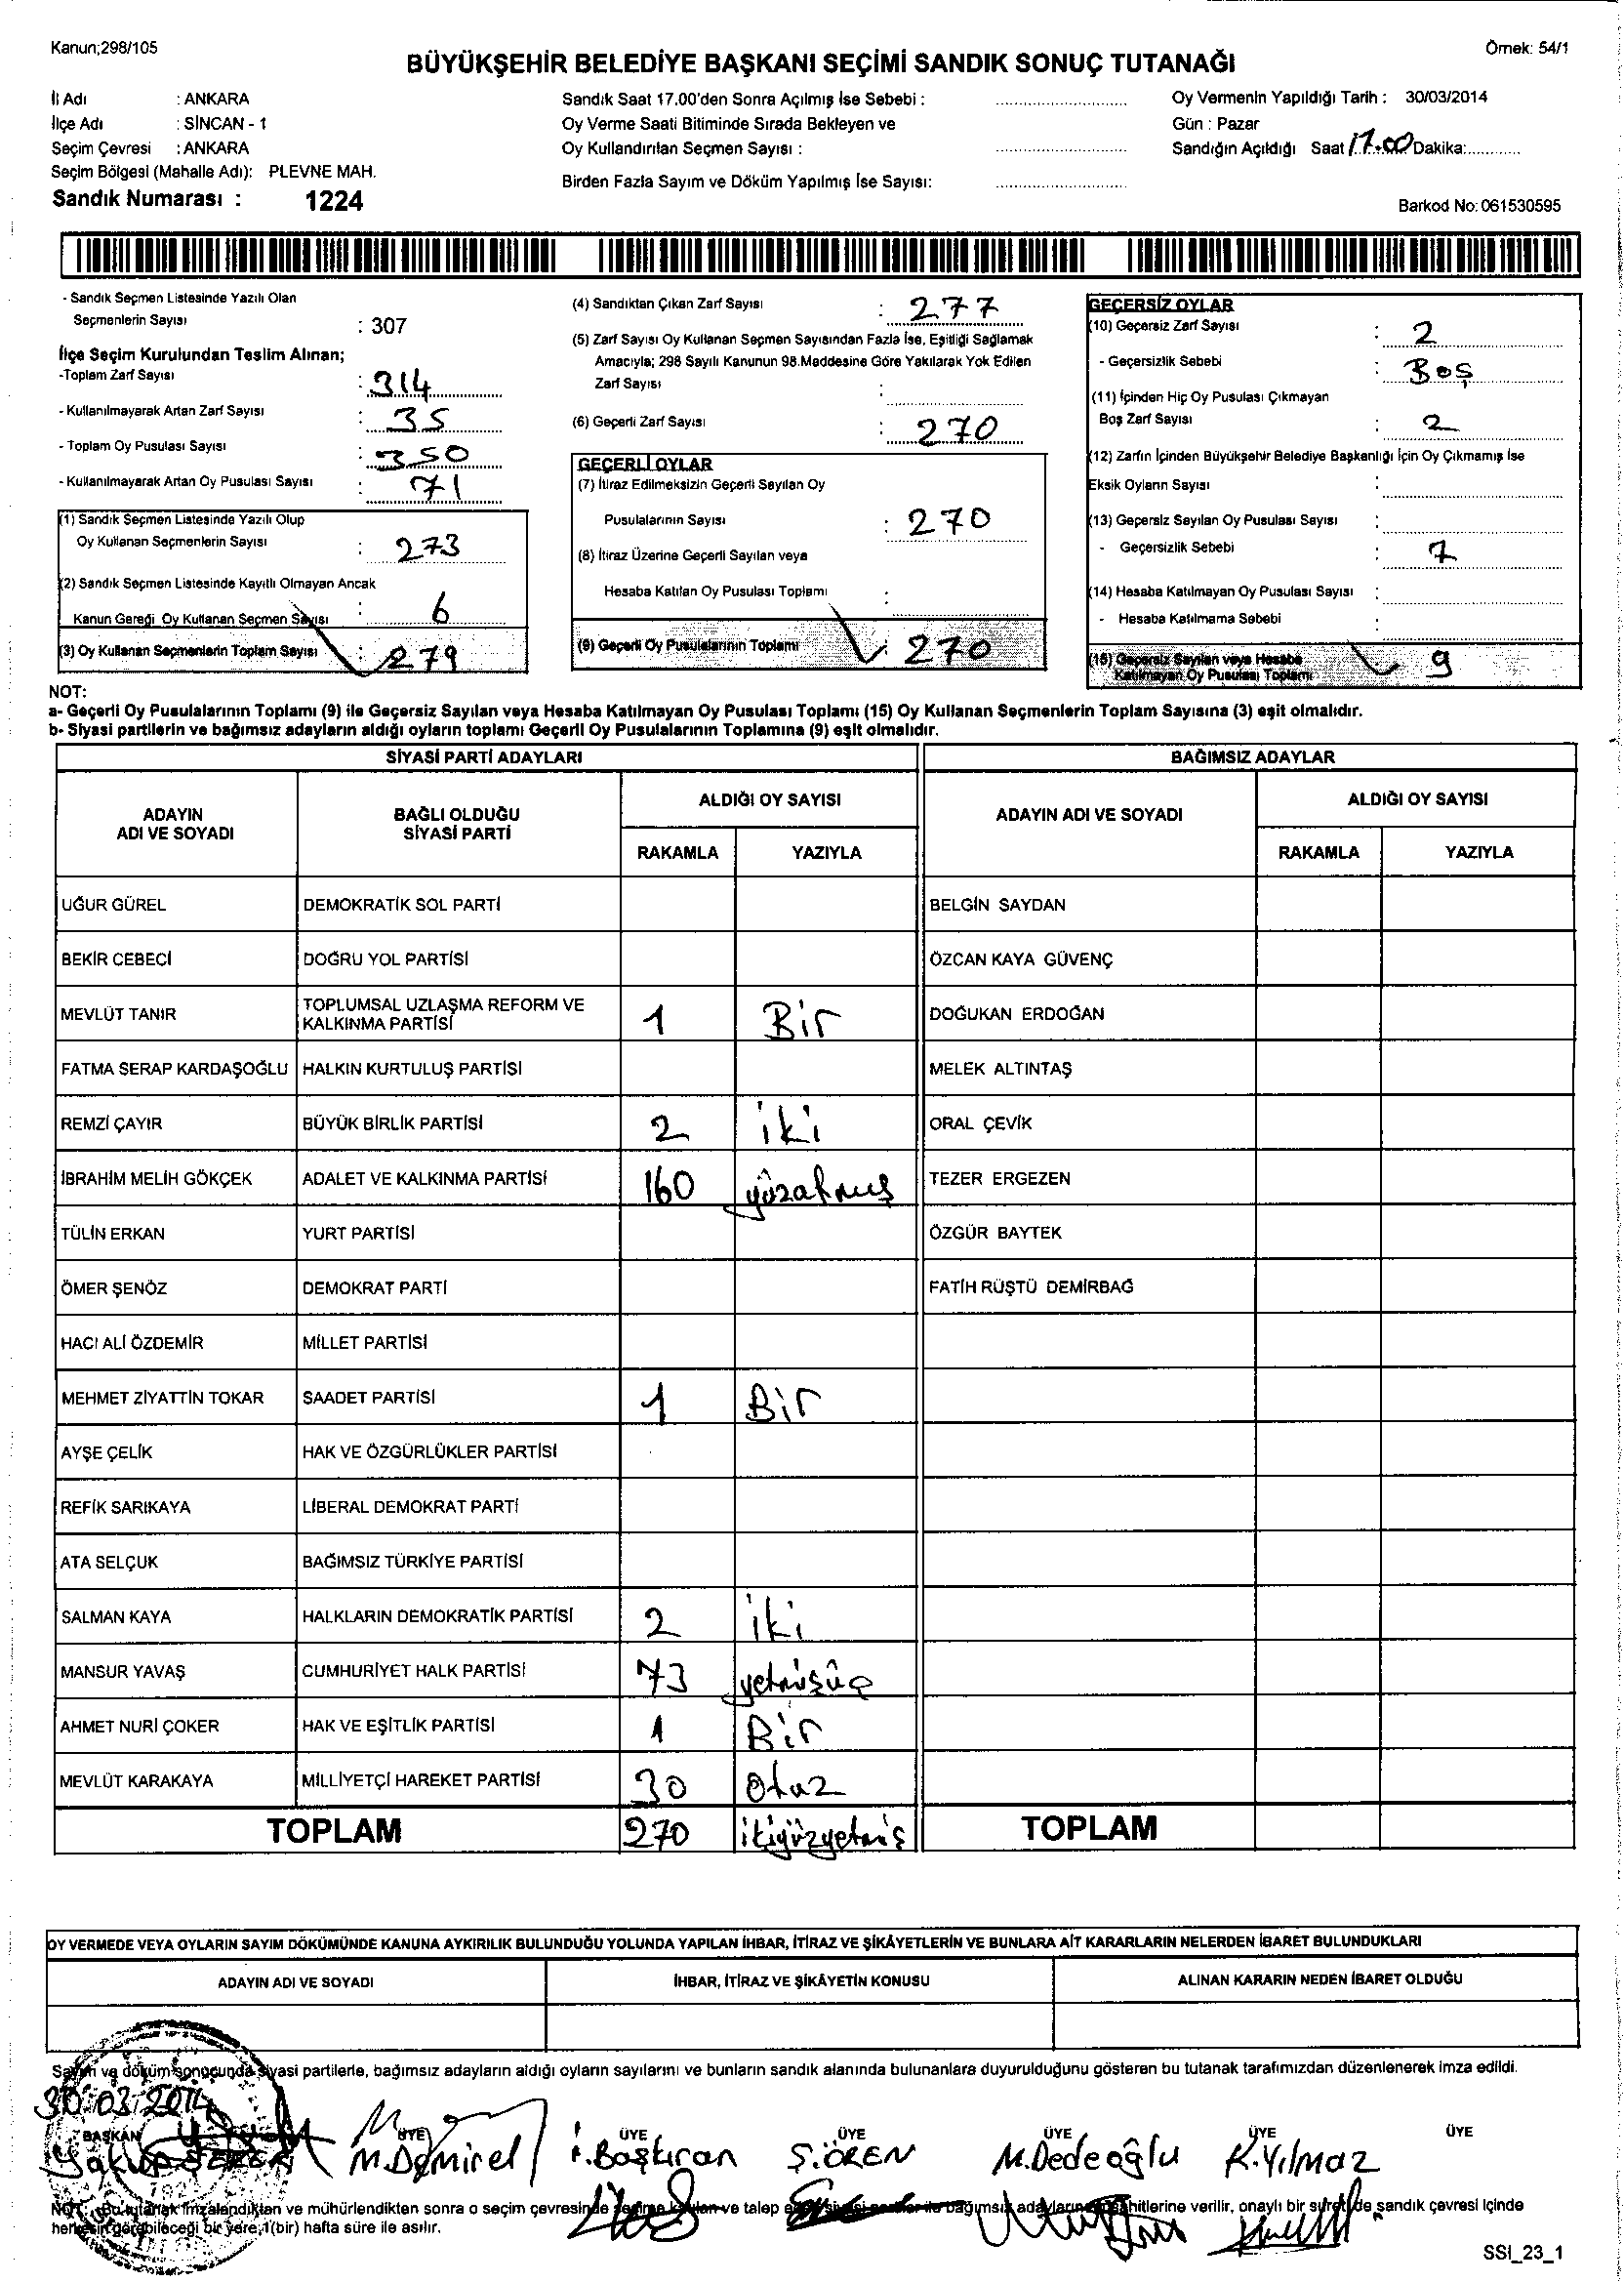 Kanun;298/105
Örnek: 54/1
BÜYÜKŞEHİR BELEDİYE BAŞKANI SEÇİMİ SANDIK SONUÇ TUTANAĞI
İl Adı : ANKARA
İlçe Adı : SİNCAN - 1
Seçim Çevresi : ANKARA
Seçim Bölgesi (Mahalle Adı): PLEVNE MAH.
Sandık Numarası : 1224
Sandık Saat 17.00'den Sonra Açılmış İse Sebebi :
Oy Verme Saati Bitiminde Sırada Bekleyen ve
Oy Kullandırılan Seçmen Sayısı :
Birden Fazla Sayım ve Döküm Yapılmış İse Sayısı:
Oy Vermenin Yapıldığı Tarih : 30/03/2014
Gün : Pazar
Sandığın Açıldığı Saat 17.00 Dakika:
Barkod No: 061530595
- Sandık Seçmen Listesinde Yazılı Olan
Seçmenlerin Sayısı : 307
İlçe Seçim Kurulundan Teslim Alınan;
-Toplam Zarf Sayısı : 314
- Kullanılmayarak Artan Zarf Sayısı : 35
- Toplam Oy Pusulası Sayısı : 350
- Kullanılmayarak Artan Oy Pusulası Sayısı : 71
(1) Sandık Seçmen Listesinde Yazılı Olup
Oy Kullanan Seçmenlerin Sayısı : 273
(2) Sandık Seçmen Listesinde Kayıtlı Olmayan Ancak
Kanun Gereği Oy Kullanan Seçmen Sayısı : 6
(3) Oy Kullanan Seçmenlerin Toplam Sayısı : 279
(4) Sandıktan Çıkan Zarf Sayısı : 277
(5) Zarf Sayısı Oy Kullanan Seçmen Sayısından Fazla İse, Eşitliği Sağlamak
Amacıyla; 298 Sayılı Kanunun 98.Maddesine Göre Yakılarak Yok Edilen
Zarf Sayısı :
(6) Geçerli Zarf Sayısı : 270
GEÇERLİ OYLAR
(7) İtiraz Edilmeksizin Geçerli Sayılan Oy
Pusulalarının Sayısı : 270
(8) İtiraz Üzerine Geçerli Sayılan veya
Hesaba Katılan Oy Pusulası Toplamı :
(9) Geçerli Oy Pusulalarının Toplamı : 270
GEÇERSİZ OYLAR
(10) Geçersiz Zarf Sayısı : 2
- Geçersizlik Sebebi : Boş
(11) İçinden Hiç Oy Pusulası Çıkmayan
Boş Zarf Sayısı : 2
(12) Zarfın İçinden Büyükşehir Belediye Başkanlığı İçin Oy Çıkmamış İse
Eksik Oyların Sayısı :
(13) Geçersiz Sayılan Oy Pusulası Sayısı :
- Geçersizlik Sebebi : 7
(14) Hesaba Katılmayan Oy Pusulası Sayısı :
- Hesaba Katılmama Sebebi :
(15) Geçersiz Sayılan veya Hesaba
Katılmayan Oy Pusulası Toplamı 9
NOT:
a- Geçerli Oy Pusulalarının Toplamı (9) ile Geçersiz Sayılan veya Hesaba Katılmayan Oy Pusulası Toplamı (15) Oy Kullanan Seçmenlerin Toplam Sayısına (3) eşit olmalıdır.
b- Siyasi partilerin ve bağımsız adayların aldığı oyların toplamı Geçerli Oy Pusulalarının Toplamına (9) eşit olmalıdır.
SİYASİ PARTİ ADAYLARI BAĞIMSIZ ADAYLAR
ADAYIN ADI VE SOYADI
BAĞLI OLDUĞU SİYASİ PARTİ
ALDIĞI OY SAYISI
RAKAMLA YAZIYLA
ADAYIN ADI VE SOYADI
ALDIĞI OY SAYISI
RAKAMLA YAZIYLA
UĞUR GÜREL DEMOKRATİK SOL PARTİ BELGİN SAYDAN
BEKİR CEBECİ DOĞRU YOL PARTİSİ ÖZCAN KAYA GÜVENÇ
MEVLÜT TANIR TOPLUMSAL UZLAŞMA REFORM VE KALKINMA PARTİSİ 1 Bir DOĞUKAN ERDOĞAN
FATMA SERAP KARDAŞOĞLU HALKIN KURTULUŞ PARTİSİ MELEK ALTINTAŞ
REMZİ ÇAYIR BÜYÜK BİRLİK PARTİSİ 2 iki ORAL ÇEVİK
İBRAHİM MELİH GÖKÇEK ADALET VE KALKINMA PARTİSİ 160 yüzatmış TEZER ERGEZEN
TÜLİN ERKAN YURT PARTİSİ ÖZGÜR BAYTEK
ÖMER ŞENÖZ DEMOKRAT PARTİ FATİH RÜŞTÜ DEMİRBAĞ
HACI ALİ ÖZDEMİR MİLLET PARTİSİ
MEHMET ZİYATTİN TOKAR SAADET PARTİSİ 1 Bir
AYŞE ÇELİK HAK VE ÖZGÜRLÜKLER PARTİSİ
REFİK SARIKAYA LİBERAL DEMOKRAT PARTİ
ATA SELÇUK BAĞIMSIZ TÜRKİYE PARTİSİ
SALMAN KAYA HALKLARIN DEMOKRATİK PARTİSİ 2 iki
MANSUR YAVAŞ CUMHURİYET HALK PARTİSİ 73 yetmişüç
AHMET NURİ ÇOKER HAK VE EŞİTLİK PARTİSİ 1 Bir
MEVLÜT KARAKAYA MİLLİYETÇİ HAREKET PARTİSİ 30 Otuz
TOPLAM 270 ikiyüzyetmiş TOPLAM
OY VERMEDE VEYA OYLARIN SAYIM DÖKÜMÜNDE KANUNA AYKIRILIK BULUNDUĞU YOLUNDA YAPILAN İHBAR, İTİRAZ VE ŞİKÂYETLERİN VE BUNLARA AİT KARARLARIN NELERDEN İBARET BULUNDUKLARI
ADAYIN ADI VE SOYADI İHBAR, İTİRAZ VE ŞİKÂYETİN KONUSU ALINAN KARARIN NEDEN İBARET OLDUĞU
Sayım ve döküm sonucunda siyasi partilerle, bağımsız adayların aldığı oyların sayılarını ve bunların sandık alanında bulunanlara duyurulduğunu gösteren bu tutanak tarafımızdan düzenlenerek imza edildi.
30.03.2014
BAŞKAN ÜYE ÜYE ÜYE ÜYE ÜYE ÜYE
Yakup M.Demirel İ.Başkıran Ş.ÖREN M.Dedeoğlu K.Yılmaz
NOT: Bu tutanak imzalandıktan ve mühürlendikten sonra o seçim çevresinde seçime katılan ve talep eden siyasi partiler ile bağımsız adayların müşahitlerine verilir, onaylı bir sureti de sandık çevresi içinde
herkesin görebileceği bir yere,1(bir) hafta süre ile asılır.
SSI_23_1